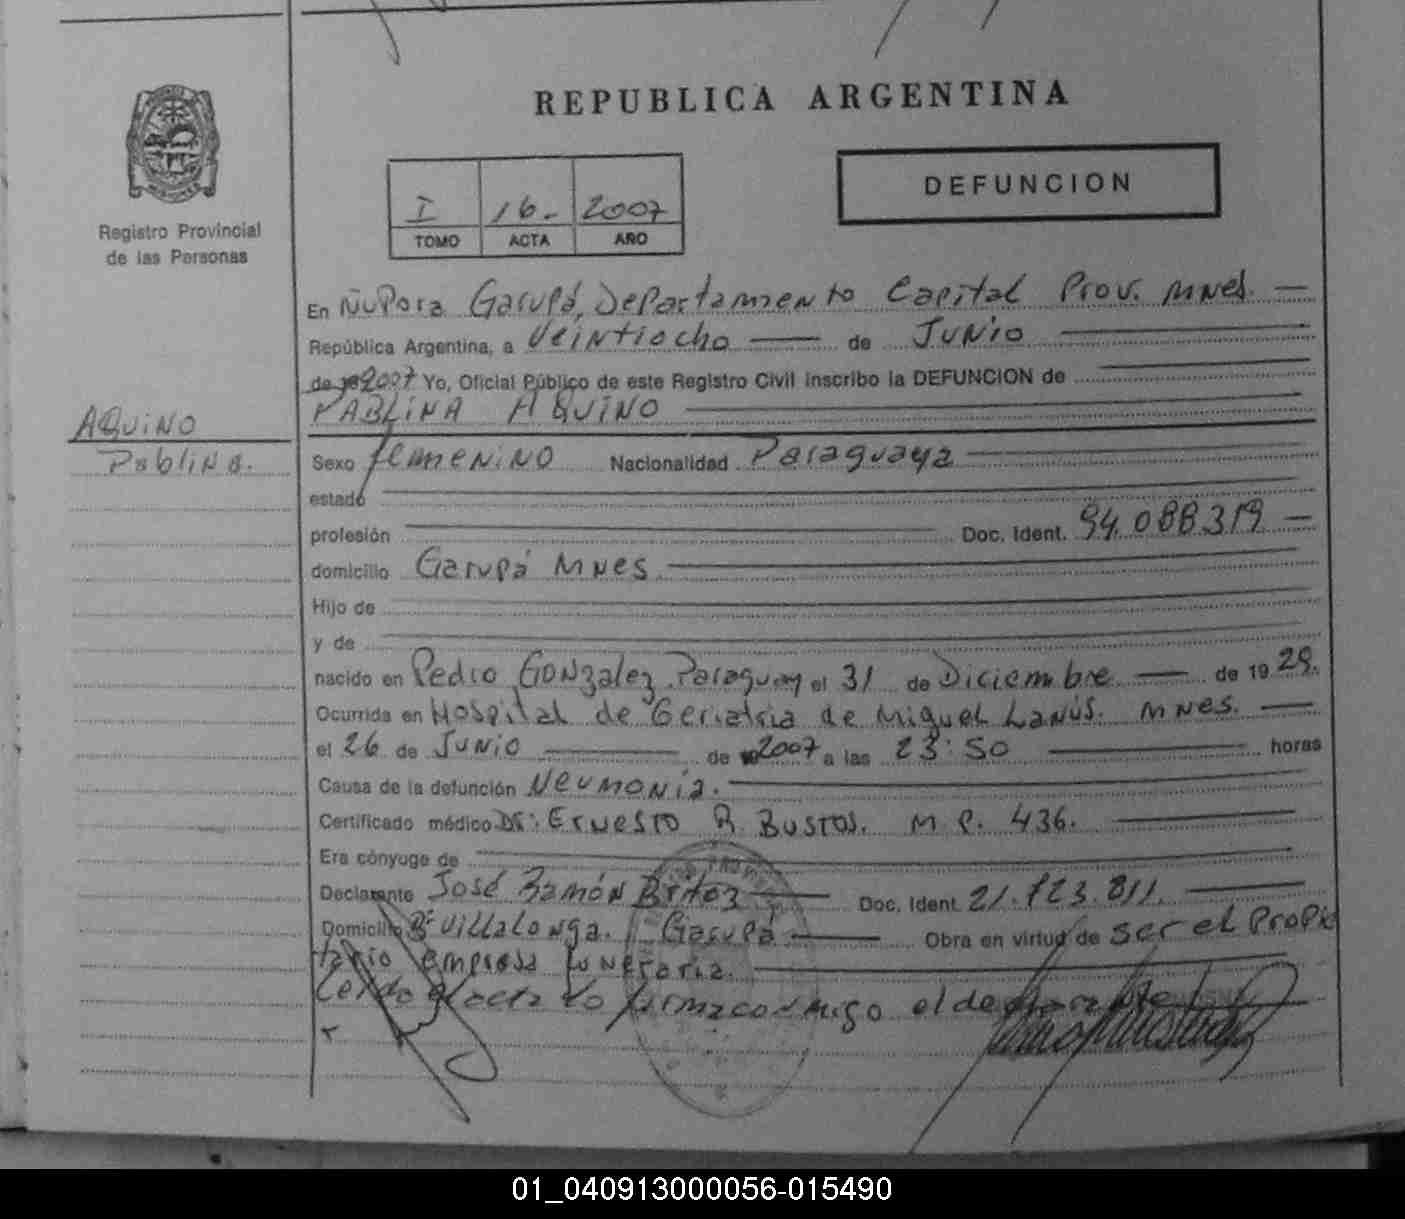 REPUBLICA ARGENTINA
DEFUNCION
I 16- 2007
TOMO ACTA AÑO
Registro Provincial
de las Personas
AQUiNO
Pablina.
En ÑuPora Garupá, Departamento Capital Prov. Mnes.
República Argentina, a Veintiocho de Junio
de 2007 Yo, Oficial Público de este Registro Civil inscribo la DEFUNCION de
PABLiNA AQUiNO
Sexo femenino Nacionalidad Paraguaya
estado
profesión Doc. Ident. 94.088.319
domicilio Garupá Mnes
Hijo de
y de
nacido en Pedro Gonzalez Paraguay el 31 de Diciembre de 19 29.
Ocurrida en Hospital de Geriatria de Miguel Lanus. Mnes.
el 26 de Junio de 2007 a las 23:50 horas
Causa de la defunción Neumonía.
Certificado médico Dr: Ernesto R Bustos. M.P. 436.
Era cónyuge de
Declarante José Ramón Britez Doc. Ident. 21.723.811.
Domicilio Bº Villalonga. Garupá Obra en virtud de ser el Propie
tario empresa funeraria.
Leida el acta lo firma conmigo el declarante
01_040913000056-015490